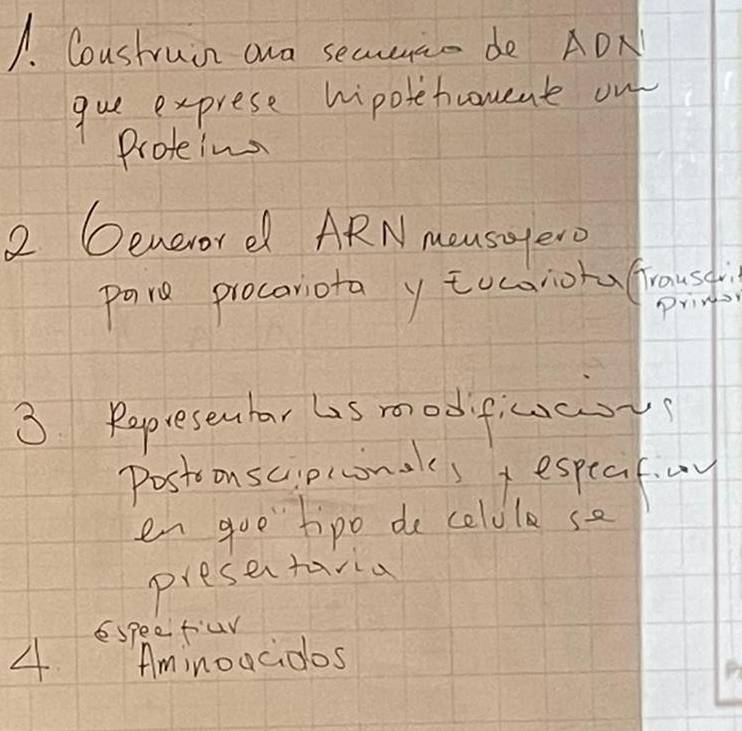 1. Construir una secuencia de ADN
que exprese hipotéticamente una
Proteina
2 Generar el ARN mensajero
para procariota y Eucariota (Transcrit
primar
3. Representar las modificaciones
Postranscripcionales y especificar
en que tipo de celula se
presentaria
especificar
4. Aminoacidos